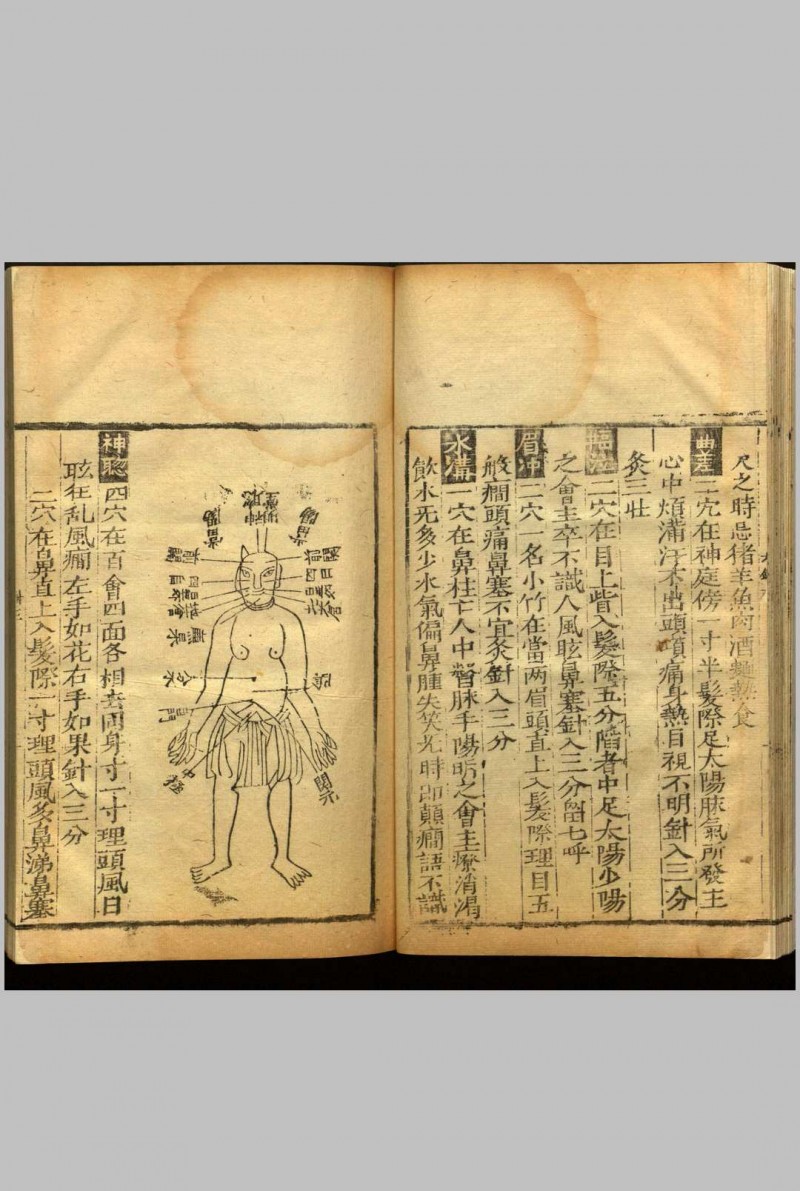 尺之時忌猪羊魚肉酒麵熱食
曲差二穴在神庭傍一寸半髮際足太陽脉氣所發主
心中煩滿汗不出頭項痛身熱目視不明針入三分
灸三壮
臨泣二穴在目上眥入髮際五分陷者中足太陽少陽
之會主卒不識人風眩鼻塞針入三分留七呼
眉冲二穴一名小竹在當两眉頭直上入髮際理目五
般癇頭痛鼻塞不宜灸針入三分
水溝一穴在鼻柱下人中督脉手陽明之會主療消渴
飲水无多少水氣偏鼻腫失笑无時即顛癇語不識
神聦四穴在百會四面各相去同身寸一寸理頭風目
眩狂乱風癇左手如花右手如果針入三分
二穴在鼻直上入髮際一寸理頭風多鼻涕鼻塞
當陽
神聦
當陽
關元